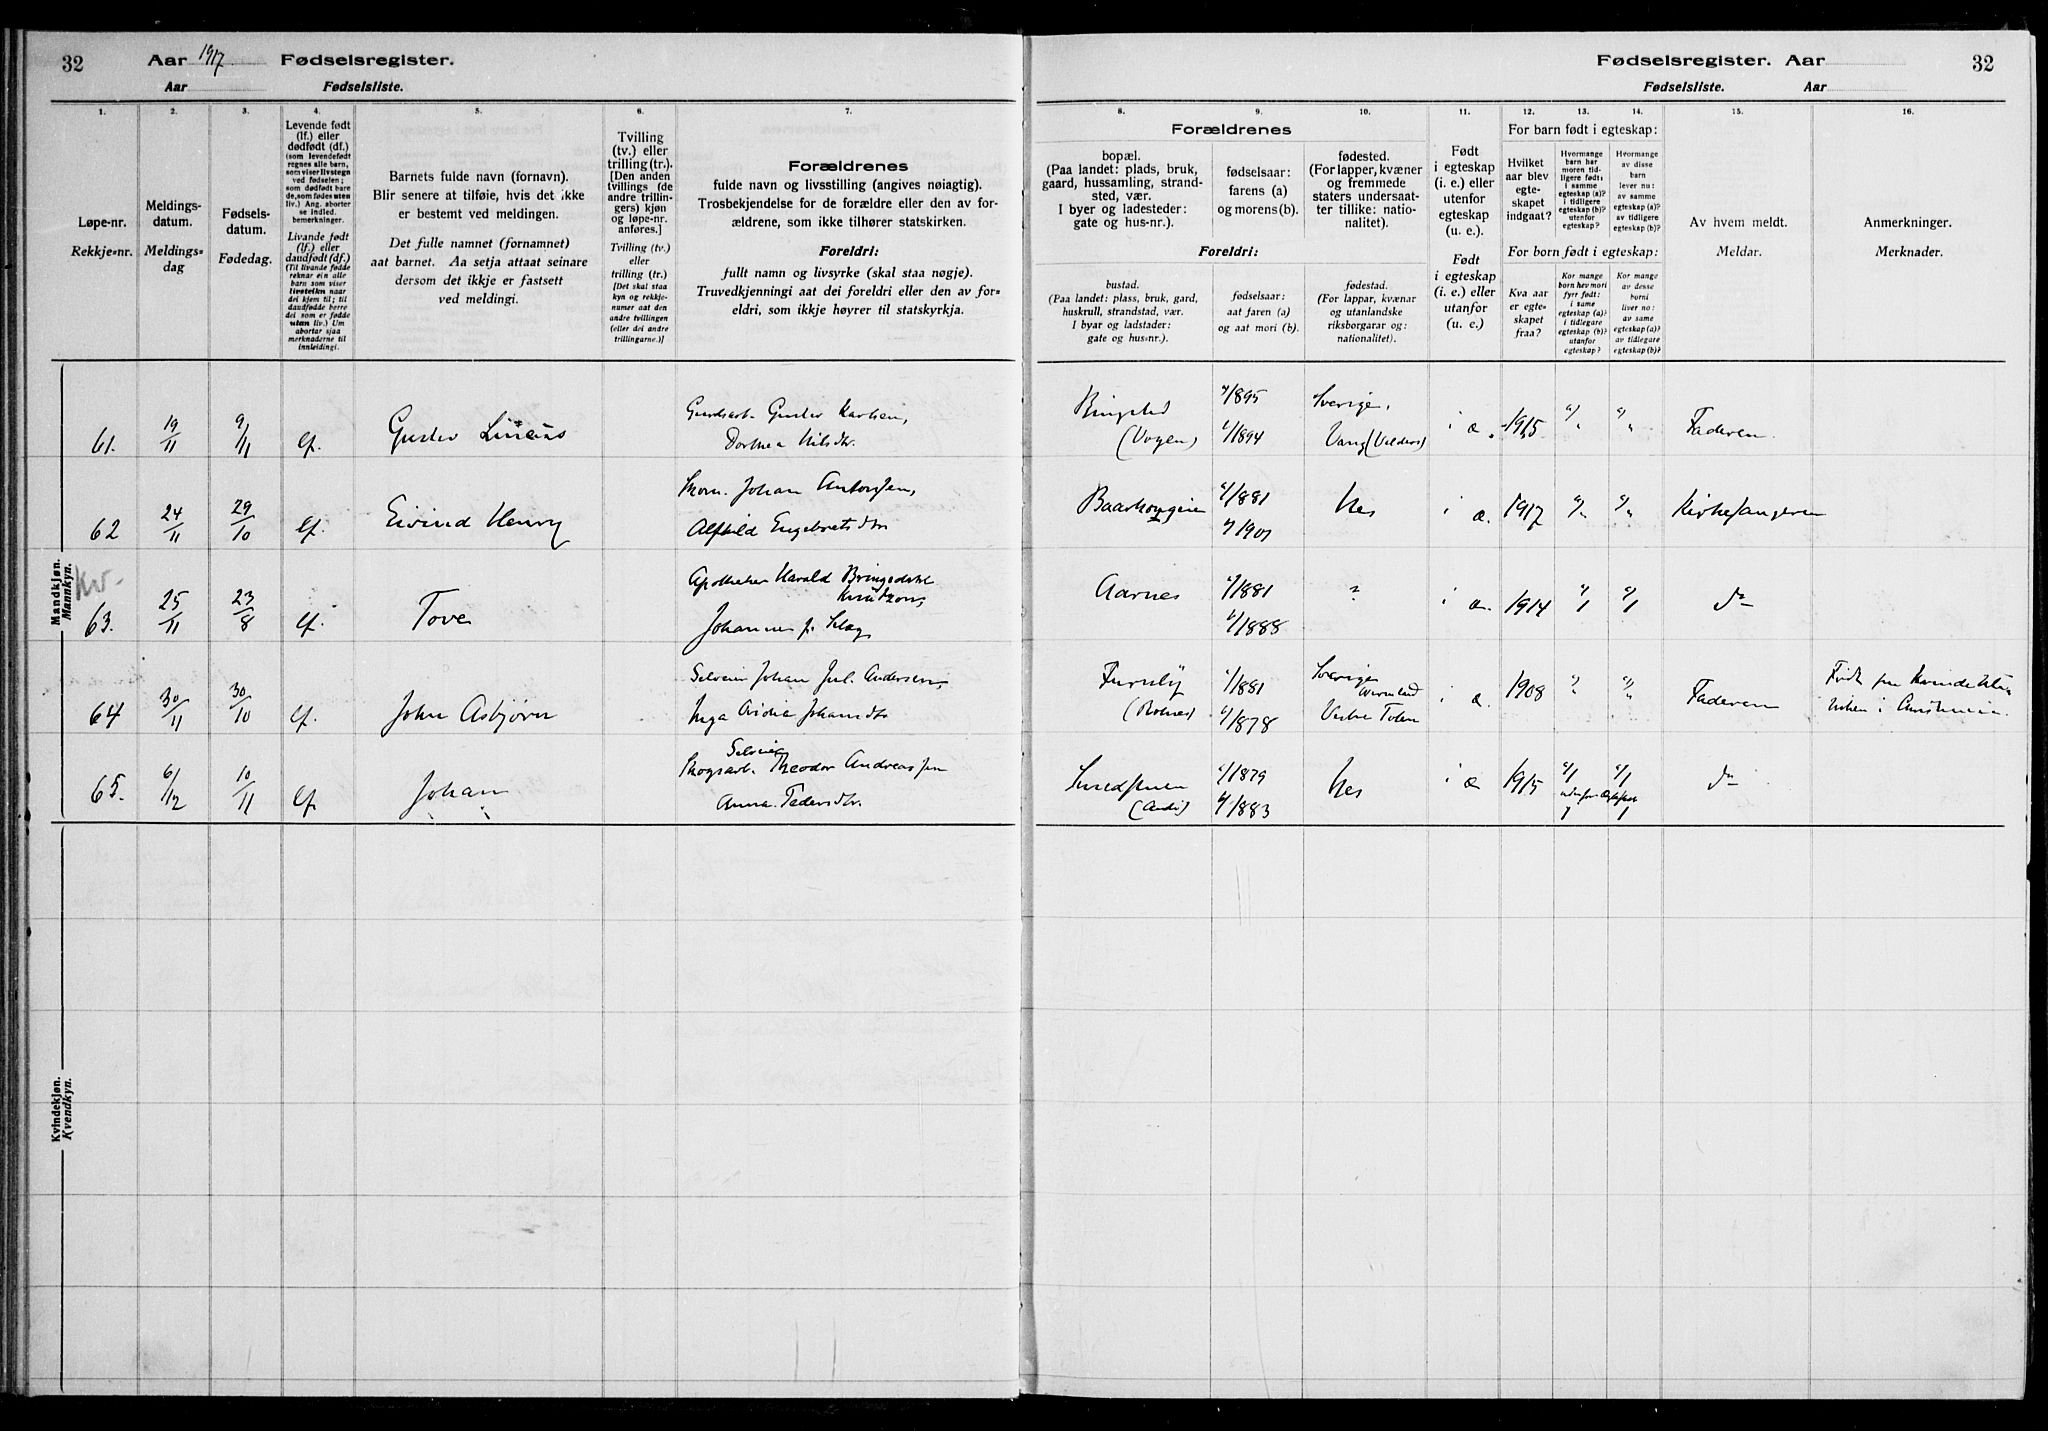 32 Aar 1917 Fødselsregister.
Aar Fødselsliste.
Fødselsregister. Aar 32
Fødselsliste. Aar
1. 2. 3. 4. 5. 6. 7. 8. 9. 10. 11. 12. 13. 14. 15. 16.
Løpe-nr.
Rekkje-nr.
Meldings-
datum.
Meldings-
dag
Fødsels-
datum.
Fødedag.
Levende født
(lf.) eller
dødfødt (df.)
(som levendefødt
regnes alle barn,
som viser livstegn
ved fødselen;
som dødfødt bare
de, som fødes uten
liv.) Ang. aborter
se indled.
bemerkninger.
Livande født
(lf.) eller
daudfødt (df.)
(Til livande fødde
reknar ein alle
barn som viser
livsteikn naar
dei kjem til; til
daudfødde berre
dei som er fødde
utan liv.) Um
abortar sjaa
merknaderne til
innleidingi.
Barnets fulde navn (fornavn).
Blir senere at tilføie, hvis det ikke
er bestemt ved meldingen.
Det fulle namnet (fornamnet)
aat barnet. Aa setja attaat seinare
dersom det ikkje er fastsett
ved meldingi.
Tvilling
(tv.) eller
trilling (tr.).
[Den anden
tvillings (de
andre trillin-
gers) kjøn
og løpe-nr.
anføres.]
Tvilling (tv.)
eller
trilling (tr.)
[Det skal staa
kyn og rekkje-
numer aat den
andre tvillingen
(eller dei andre
trillingarne.)]
Forældrenes
fulde navn og livsstilling (angives nøiagtig).
Trosbekjendelse for de forældre eller den av for-
ældrene, som ikke tilhører statskirken.
Foreldri:
fullt namn og livsyrke (skal staa nøgje).
Truvedkjenningi aat dei foreldri eller den av for-
eldri, som ikkje høyrer til statskyrkja.
Forældrenes
bopæl.
(Paa landet: plads, bruk,
gaard, hussamling, strand-
sted, vær.
I byer og ladesteder:
gate og hus-nr.).
fødselsaar:
farens (a)
og morens (b).
fødested.
(For lapper, kvæner
og fremmede
staters undersaat-
ter tillike: natio-
nalitet).
Foreldri:
bustad.
(Paa landet: plass, bruk, gard,
huskrull, strandstad, vær.
I byar og ladstader:
gate og hus-nr.).
fødselsaar:
aat faren (a)
og aat mori (b).
fødestad.
(For lappar, kvænar
og utanlandske
riksborgarar og:
nationalitet).
Født
i egteskap
(i. e.) eller
utenfor
egteskap
(u. e.).
Født
i egteskap
(i. e.) eller
utanfor
(u. e.)
For barn født i egteskap:
Hvilket
aar blev
egte-
skapet
indgaat?
Hvormange
barn har
moren tid-
ligere født:
i samme
egteskap (a)?
i tidligere
egteskap (b)?
utenfor
egteskap?
Hvormange
av disse
barn
lever nu:
av samme
egteskap (a)?
av tidligere
egteskap (b)?
For born født i egteskap:
Kva aar
er egte-
skapet
fraa?
Kor mange
born hev mori
fyrr født:
i same
egteskap (a)?
i tidlegare
egteskap (b)?
utanfor
egteskap?
Kor mange
av desse
borni
liver no:
av same
egteskap (a)?
av tidlegare
egteskap (b)?
Av hvem meldt.
Meldar.
Anmerkninger.
Merknader.
Mandkjøn.
Mannkyn.
61. 19/11 9/11 lf. Gustav Gustav Karlsen,
Dorthea Nilsdtr.
Ringstad a/1895 Sverige,
b/1894 Vang (Valdres) i æ. 1915 Faderen.
62 24/11 29/10 lf. Eivind Henry Johan Antonsen,
Alfhild Engebretsdtr
a/1881 Nes i æ. 1917 Kirkesangeren
b/1901
Kv-
63. 25/11 23/8 lf. Tove Apotheker Harald
Knudtzon,
Johanne f.
Aarnes a/1881 ? i æ. 1914 a/1 a/1 do
b/1888
64 30/11 30/10 lf. John Asbjørn Selveier Johan Jul. Andersen,
Inga Johansdtr
Furuly a/1881 Sverige
b/1878 Vestre Toten i æ. 1908 Faderen Født paa Kvindeklin
ikken i Christiania.
65. 6/12 10/11 lf. Johan Selveier
Skogsarb. Theodor Andreassen
Anna Pedersdtr.
a/1879 Nes i æ 1915 a/1 a/1 do
b/1883 utenfor ægteskab
1 1
Kvindekjøn.
Kvendkyn.